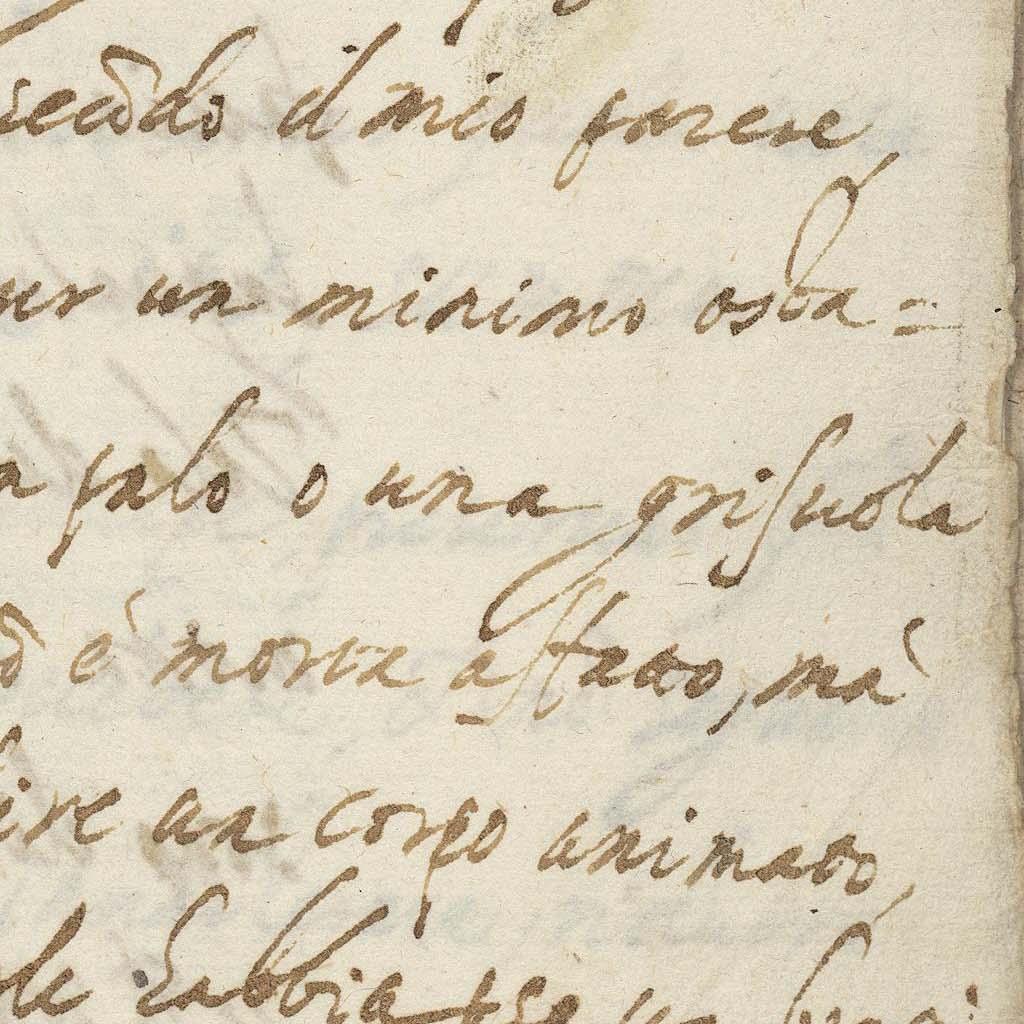 secõdo il mio parere,
un minimo osta=
palo o una grisuola
è morta affatto, mà
un corpo animato,
habbia